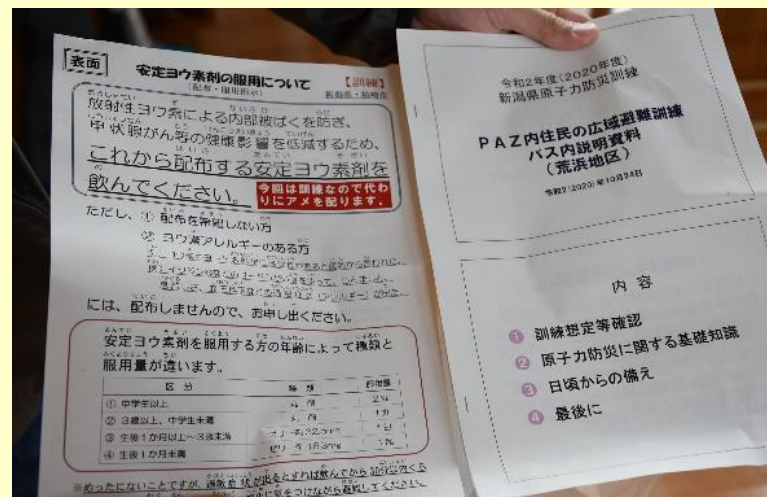 【表面】
安定ヨウ素剤の服用について
(配布・服用指示)
【訓練】
新潟県・柏崎市
放射性ヨウ素による内部被ばくを防ぎ、
甲状腺がん等の健康影響を低減するため、
これから配布する安定ヨウ素剤を
飲んでください。
今回は訓練なので代わ
りにアメを配ります。
ただし、① 配布を希望しない方
② ヨウ素アレルギーのある方
には、配布しませんので、お申し出ください。
安定ヨウ素剤を服用する方の年齢によって種類と
服用量が違います。
区 分
種 類
服用量
① 中学生以上
丸 剤
2丸
② 3歳以上、中学生未満
丸 剤
1丸
③ 生後1か月以上~3歳未満
ゼリー剤32.5mg
1包
④ 生後1か月未満
ゼリー剤16.3mg
1包
※めったにないことですが、過敏症状が出るとすれば飲んでから
令和2年度(2020年度)
新潟県原子力防災訓練
PAZ内住民の広域避難訓練
バス内説明資料
(荒浜地区)
令和2(2020)年10月24日
内 容
① 訓練想定等確認
② 原子力防災に関する基礎知識
③ 日頃からの備え
④ 最後に